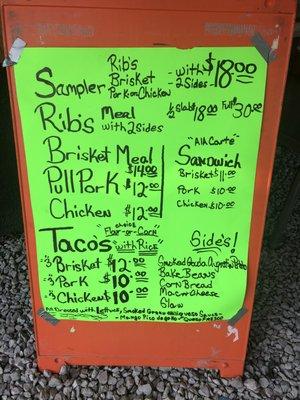 Sampler Rib's
Brisket
Pork or Chicken
- with 2 Sides $18.00
Rib's Meal
with 2 sides
1/2 Slab 18.00 Full 30.00
Brisket Meal
$14.00
Pull Pork $12.00
Chicken $12.00
"Ala Carte"
Sandwich
Brisket $11.00
Pork $10.00
Chicken $10.00
choice
"Flour-or-Corn"
Taco's "with Rice"
3 Brisket $12.00
3 Pork $10.00
3 Chicken $10.00
Side's!
Smoked Gouda
Bake Beans
Corn Bread
Mac n Cheese
Slaw
All Dressed with Lettuce, Smoked
Mango Pico de gallo